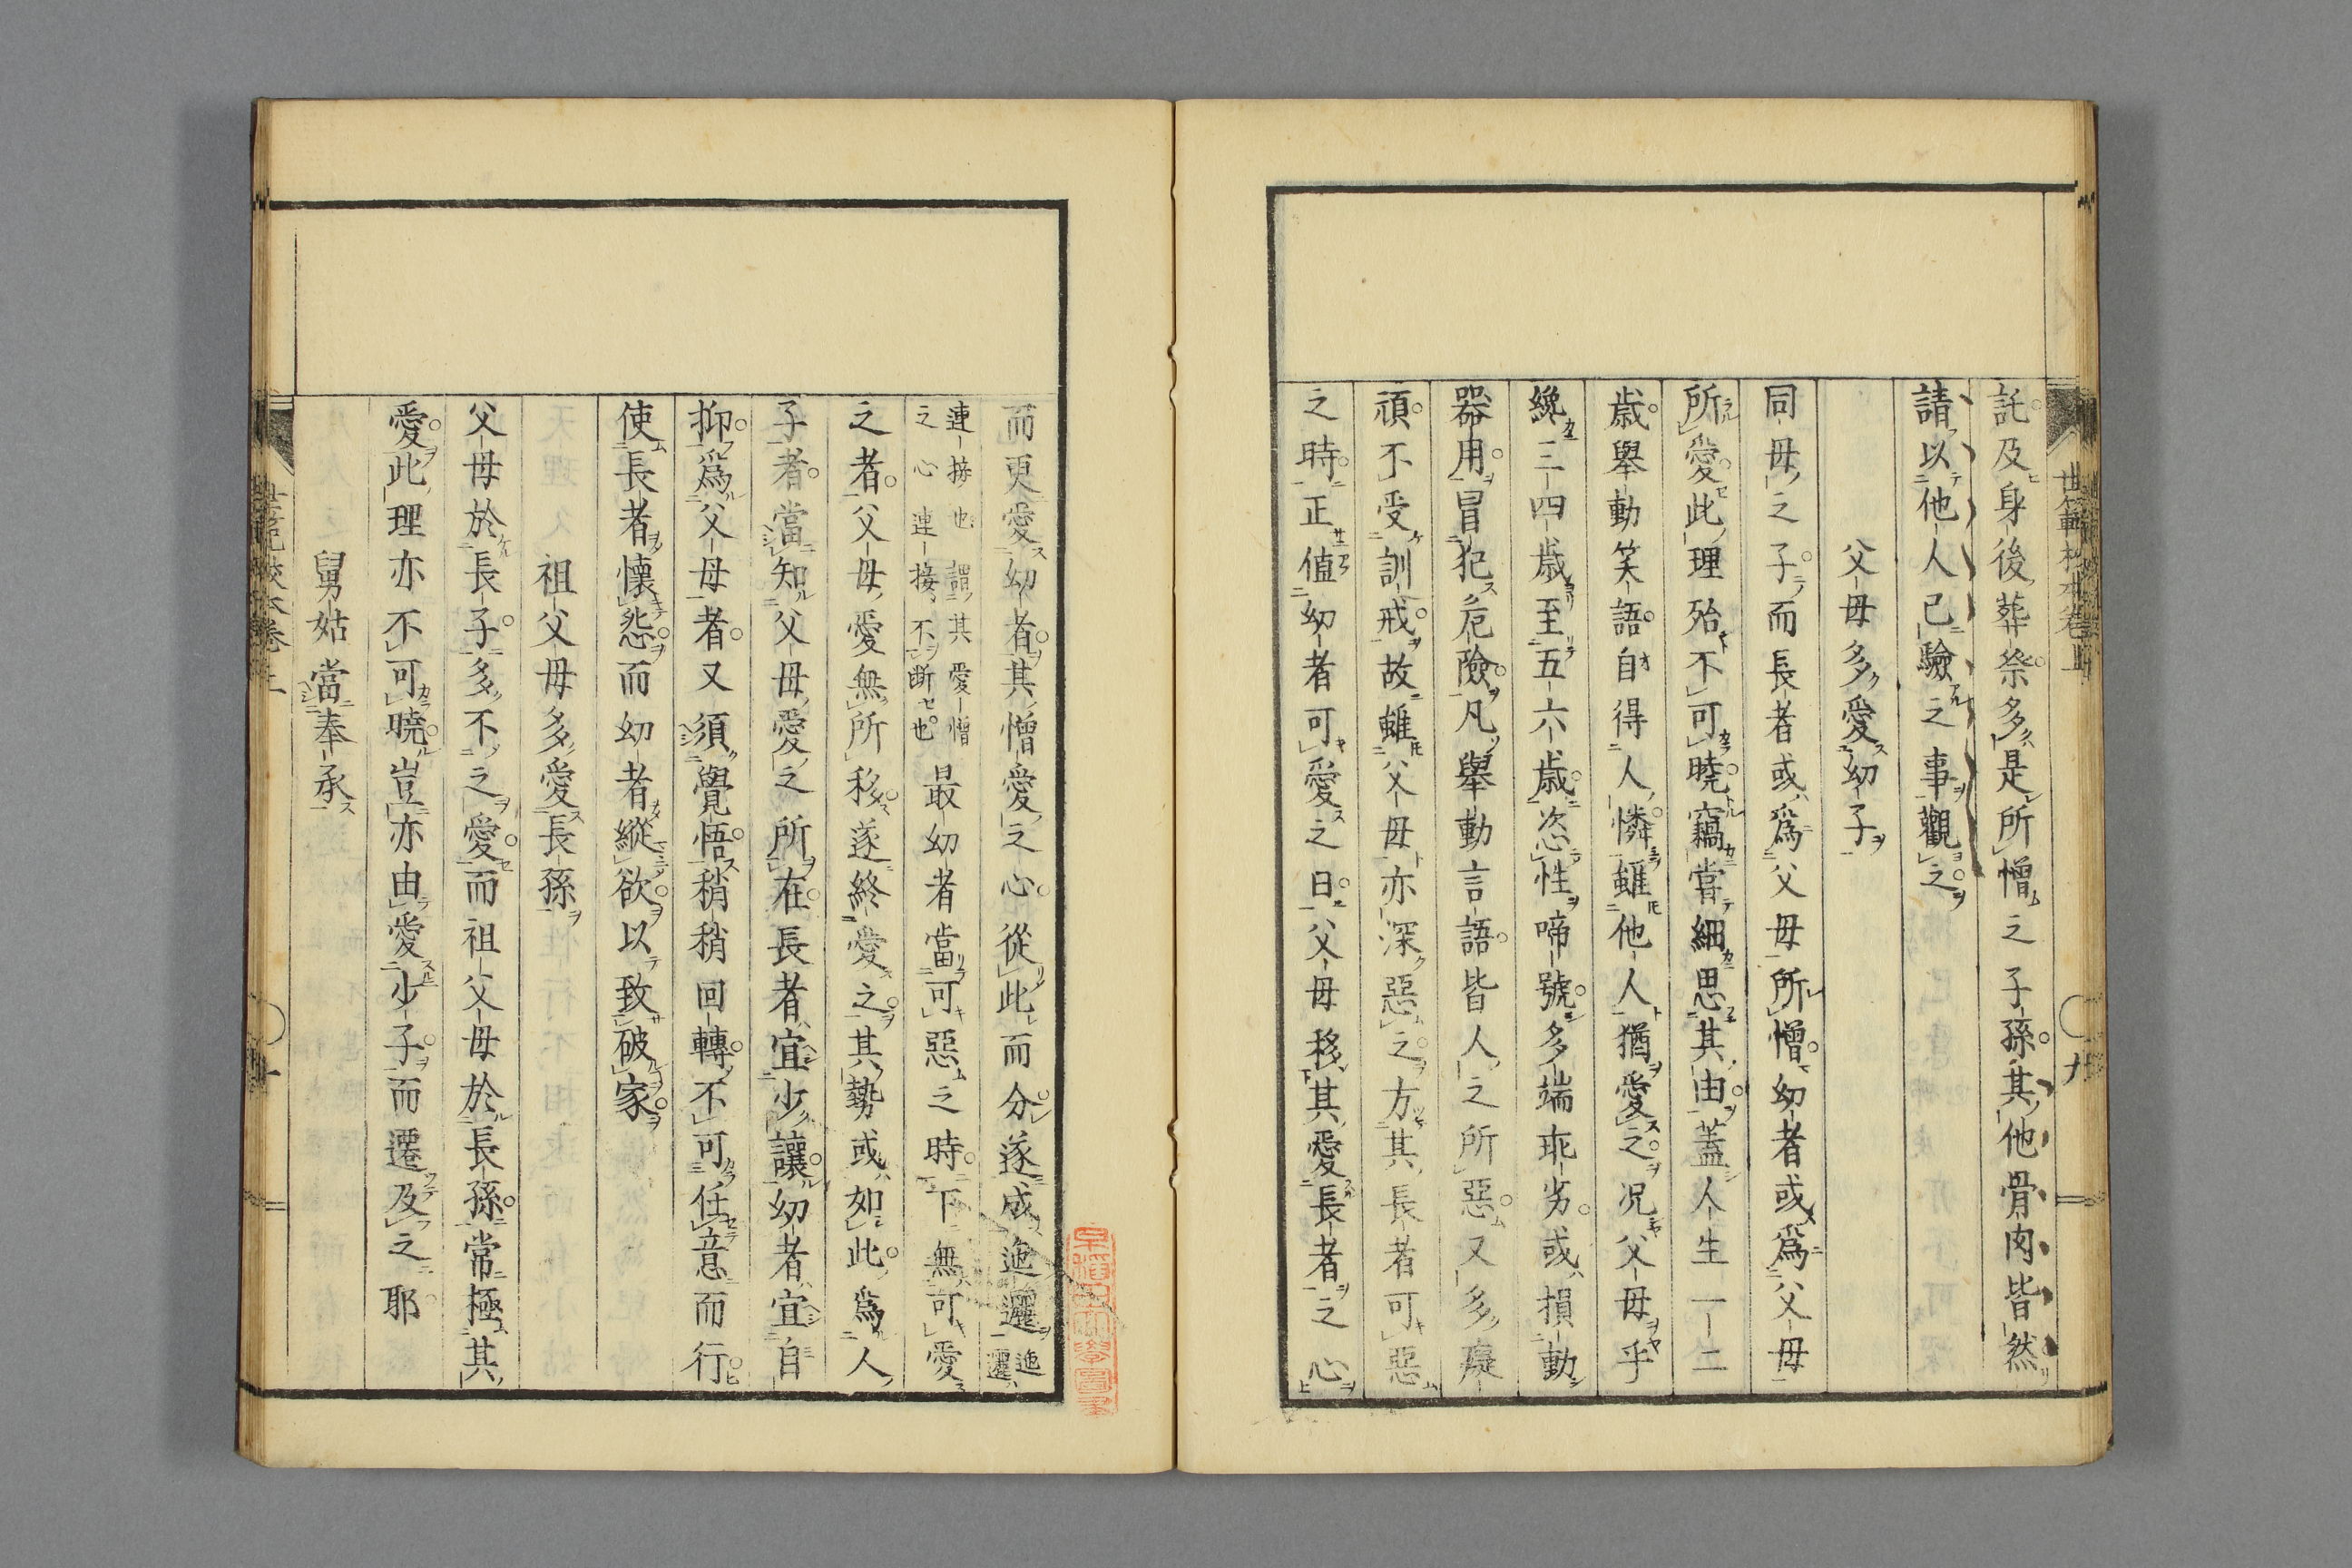 託及身後葬祭多是所憎之子孫其他骨肉皆然
請以他人已驗之事觀之
父母多愛幼子
同母之子而長者或爲父母所憎幼者或爲父母
所愛此理殆不可曉竊嘗細思其由蓋人生一二
歲舉動笑語自得人憐雖他人猶愛之况父母乎
纔三四歲至五六歲恣性啼號多端乖劣或損動
器用冒犯危險凡舉動言語皆人之所惡又多癡
頑不受訓戒故雖父母亦深惡之方其長者可惡
之時正値幼者可愛之日父母移其愛長者之心
世範校本卷上
九
而更愛幼者其憎愛之心從此而分遂成迤邐迤邐
連接也謂其愛憎
之心連接不断也
最幼者當可惡之時下無可愛
之者父母愛無所移遂終愛之其勢或如此爲人
子者當知父母愛之所在長者宜少讓幼者宜自
抑爲父母者又須覺悟稍稍回轉不可任意而行
使長者懷怨而幼者縱欲以致破家
祖父母多愛長孫
父母於長子多不之愛而祖父母於長孫常極其
愛此理亦不可曉豈亦由愛少子而遷及之耶
舅姑當奉承
世範校本卷上
早稻田大學圖書